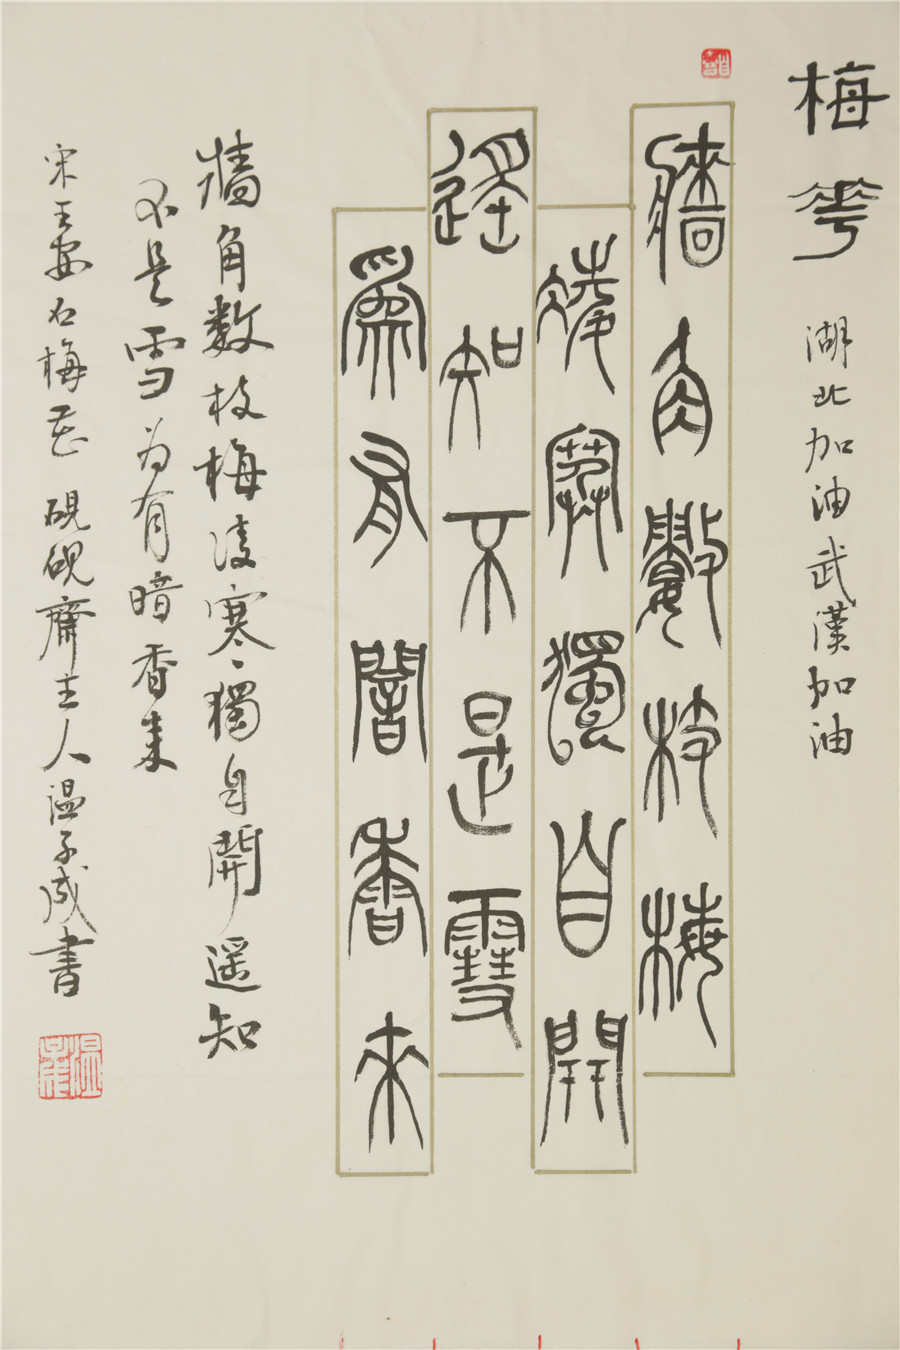 梅華
湖北加油武漢加油
牆角數枝梅
凌寒獨自開
遙知不是雪
為有闇香來
牆角數枝梅凌寒獨自開遥知
不是雪为有暗香来
宋王安石梅花 硯硯齋主人温子成書